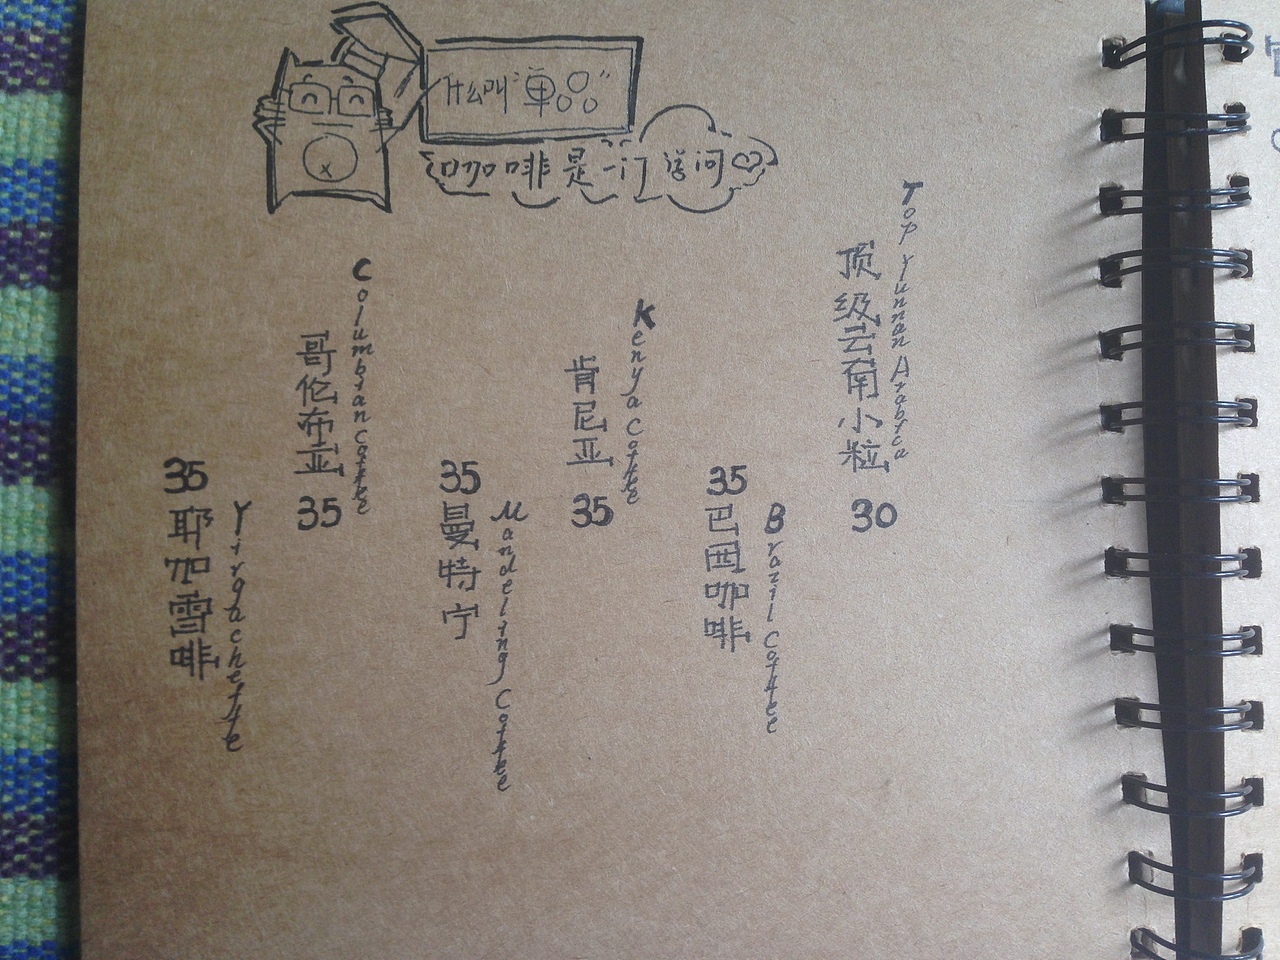 什么叫“单品”
咖啡是一门学问
Top Yunnan Arabica
顶级云南小粒
30
Brazil Coffee
35
巴西咖啡
Kenya Coffee
肯尼亚
35
Mandeling Coffee
35
曼特宁
Columbian Coffee
哥伦布亚
35
Yirgacheffe
35
耶加雪啡